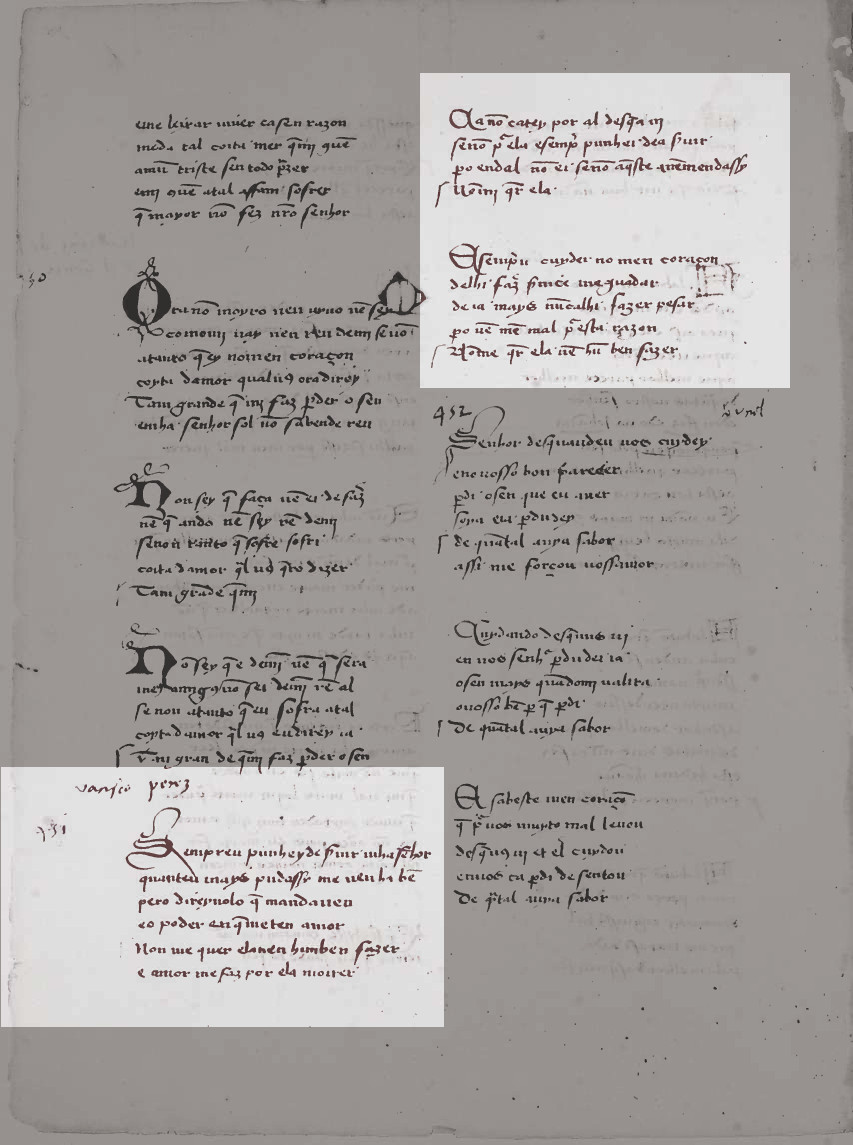 eme leixar viuer ca sen razon
meda tal coita mer q̄ mj̄ que
amui triste sen todo prazer
emj̄ que atal affam sofrer
q̄ mayor nō fez nr̄o senhor
Ora nō moyro nen uyuo nē sey
como mi uay nen ren demj̄ se nō
atanto q̄ ey no men coraçon
coyta damor qual uꝯ ora direy
Tam grande q̄ mj̄ faz ꝑder o sen
e mha senhor sol nō sab ende ren
Non sey q̄ faça nē ei de faz̄
nē q̄ ando nē sey rē demj̄
se non tanto q̄ sofre sofri
coita damor q̄l uꝯ q̄ro dizer
Tam grāde q̄ mj̄
Nō sey q̄ e demj̄ nē q̄ sera
se non atanto q̄ eu sofra atal
coyta damor q̄l uꝯ eu direy ia
Tam gran de q̄ mj̄ faz ꝑder o sen
perez
431
Sempreu punhey de s̄uir mha senhor
quanteu mays pudassy me uenha bē
pero direyuolo q̄ mandaueu
eo poder en q̄ me ten amor
Non me quer ela nen hun ben fazer
e amor me faz por ela morrer
Ca nō catey por al desq̄ a ui
se nō pͬ ela e sempͬ punhei dea s̄uir
ꝑo end al nō ei se nō aq̄ste
Nō mj q̄r ela
E sempͬu cuydei no meu coraçon
delhi faz̄
de ia mays nūcalhi fazer pesar
ꝑo uē me mal pͬ esta razon
Nō me q̄r ela nē hū ben fazer
432
Senhor desquandeu uos cuydey
e no uosso bon parecer
ꝑdi o sen que eu auer
soya eu ꝑdudey
de quātal auya sabor
assi me forçou uossamor
Cuydando desq̄ uus ui
en uos senhͬ ꝑdudei ia
o sen mays quādomi ualira
o uosso bē ꝑ q̄ ꝑdi
De quātal auya sabor
E sabeste meu coraçō
q̄ pͬ uos muyto mal leuou
desq̄ uꝯ ui et el cuydou
en uos ca ꝑdi de sentou
De q̄tal auya sabor